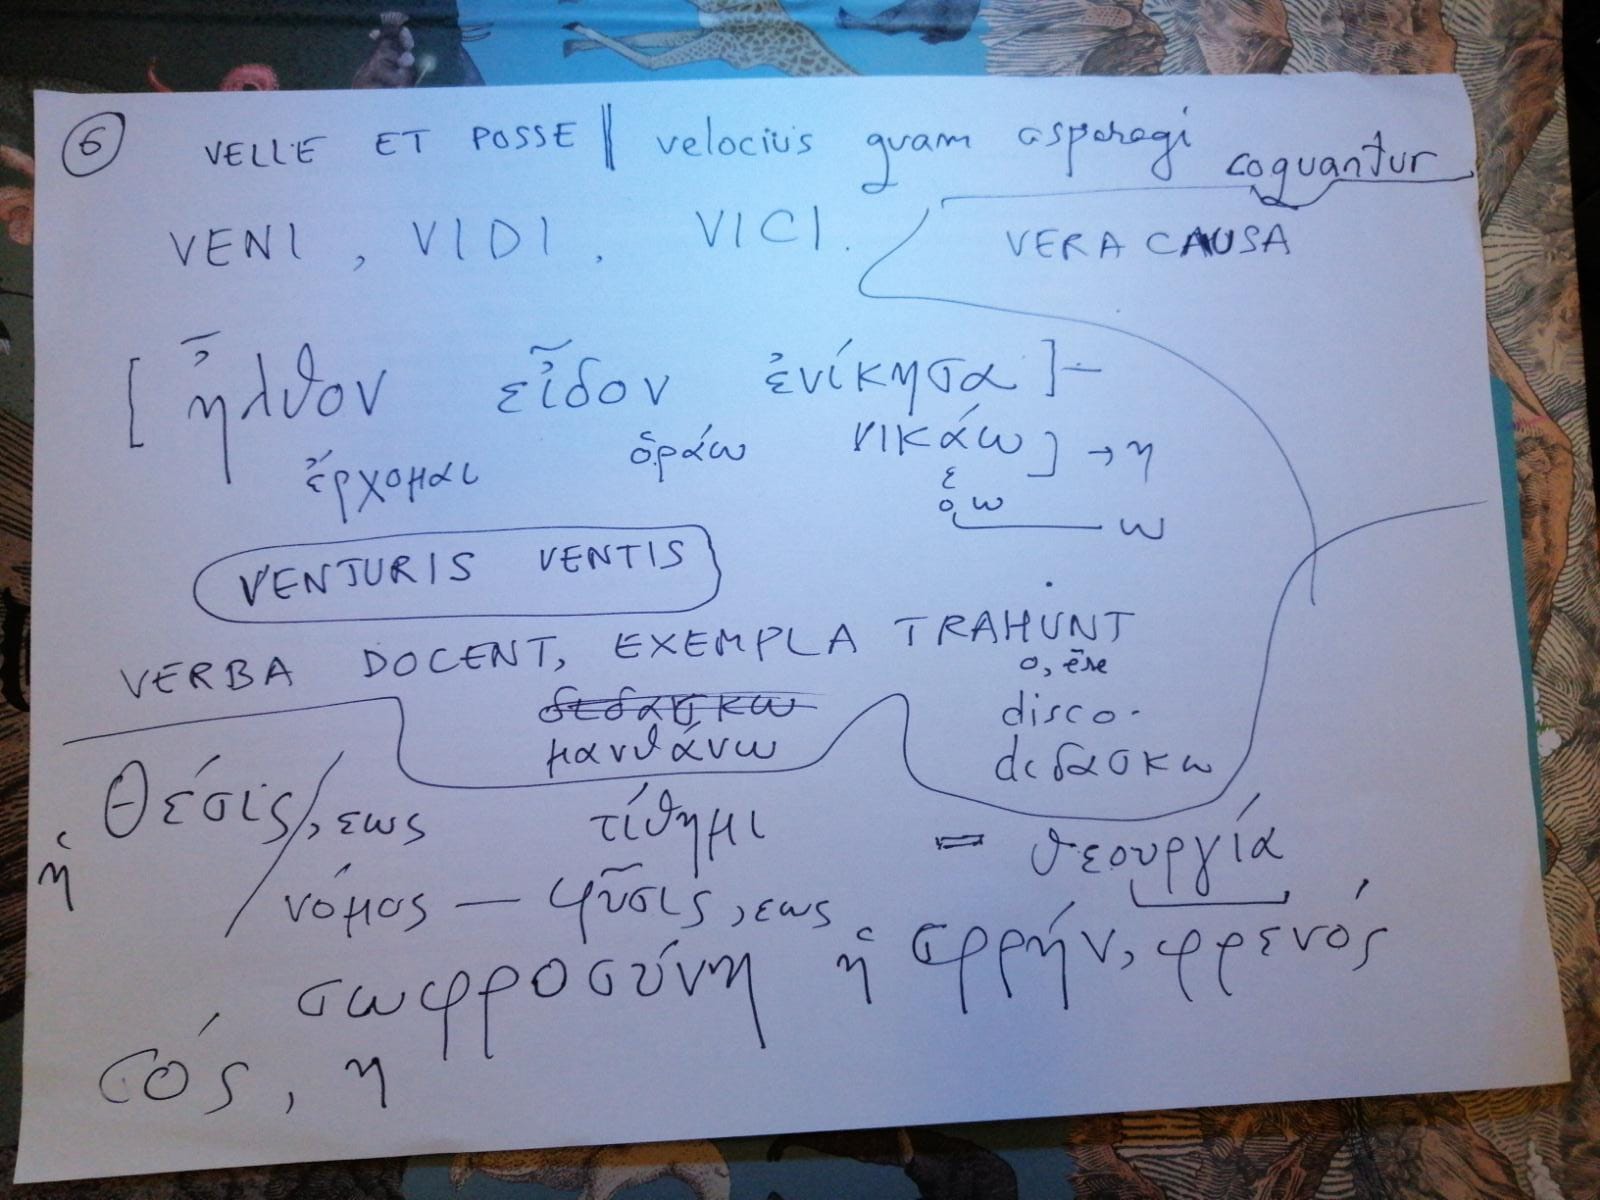 6 VELLE ET POSSE || velocius quam asparagi coquantur
VENI, VIDI, VICI. VERA CAUSA
[ ἦλθον εἶδον ἐνίκησα ] –
ἔρχομαι ὁράω νικάω ] → η
ε
ο, ω ω
VENTURIS VENTIS
VERBA DOCENT, EXEMPLA TRAHUNT
o, ēre
disco.
μανθάνω
διδασκω
ἡ Θέσις, εως τίθημι = θεουργία
νόμος — φῦσις, εως
σωφροσύνη ἡ φρήν, φρενός
σός, η